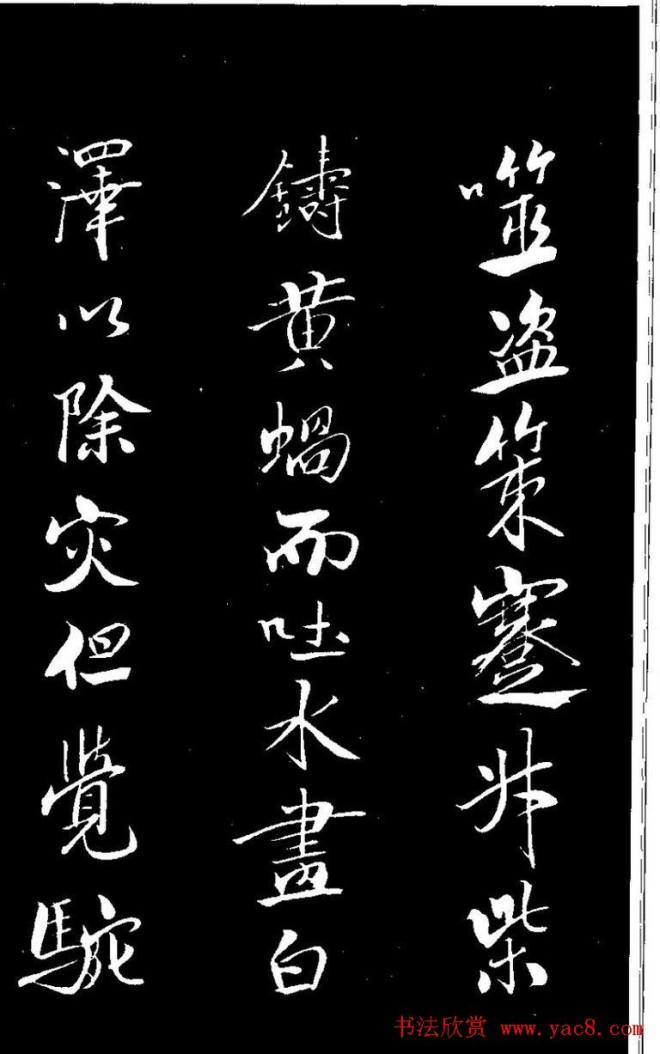 噬盗策蹇柴
鑄黄蝸而吐水畫白
澤以除灾但覺駝
书法欣赏 www.yac8.com